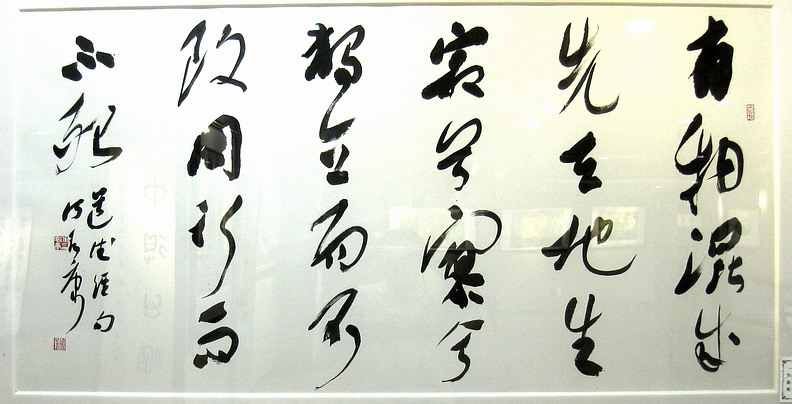 有物混成
先天地生
寂兮寥兮
獨立而不
改周行而
不殆
道德經句